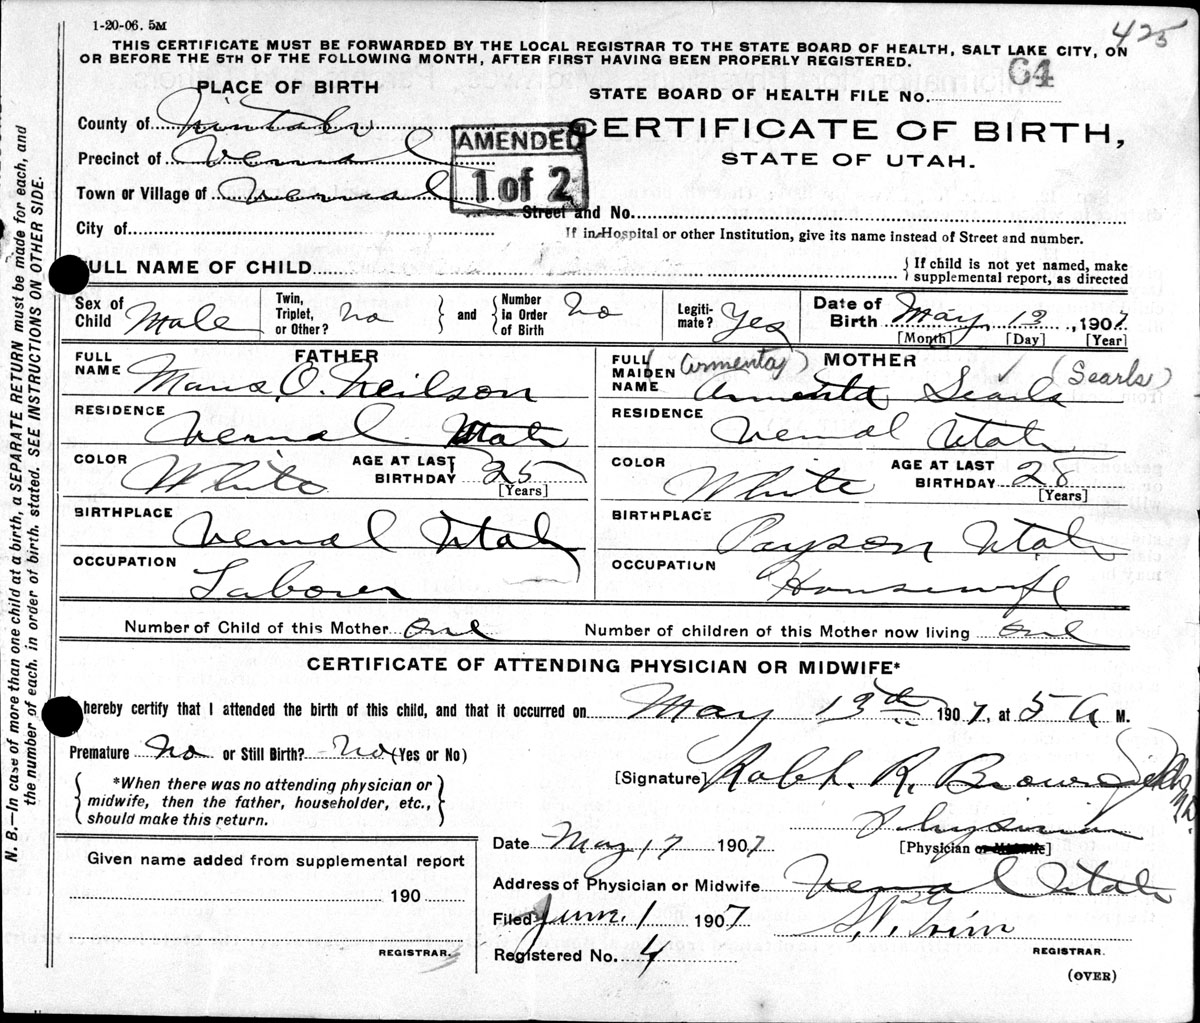 1-20-06. 5M
425
THIS CERTIFICATE MUST BE FORWARDED BY THE LOCAL REGISTRAR TO THE STATE BOARD OF HEALTH, SALT LAKE CITY, ON
OR BEFORE THE 5TH OF THE FOLLOWING MONTH, AFTER FIRST HAVING BEEN PROPERLY REGISTERED.
PLACE OF BIRTH
STATE BOARD OF HEALTH FILE NO. 64
County of Uintah
CERTIFICATE OF BIRTH,
STATE OF UTAH.
AMENDED
1 of 2
Precinct of Vernal
Town or Village of Vernal
Street and No.
City of
If in Hospital or other Institution, give its name instead of Street and number.
FULL NAME OF CHILD
{ If child is not yet named, make
supplemental report, as directed
Sex of Child Male
Twin, Triplet, or Other? No
and
Number in Order of Birth No
Legiti-mate? Yes
Date of Birth May 13, 1907
[Month] [Day] [Year]
FATHER
FULL NAME Mans O. Neilson
RESIDENCE Vernal Utah
COLOR White
AGE AT LAST BIRTHDAY 25
[Years]
BIRTHPLACE Vernal Utah
OCCUPATION Laborer
MOTHER
(Armenta) (Searls)
FULL MAIDEN NAME Armenta Searls
RESIDENCE Vernal Utah
COLOR White
AGE AT LAST BIRTHDAY 28
[Years]
BIRTHPLACE Payson Utah
OCCUPATION Housewife
Number of Child of this Mother One
Number of children of this Mother now living One
CERTIFICATE OF ATTENDING PHYSICIAN OR MIDWIFE*
I hereby certify that I attended the birth of this child, and that it occurred on May 13th 1907, at 5 A M.
Premature No or Still Birth? No (Yes or No)
{ *When there was no attending physician or
midwife, then the father, householder, etc.,
should make this return. }
[Signature] Ralph R. Brownfield M.D.
Physician
[Physician or Midwife]
Date May 17 1907
Given name added from supplemental report
190
REGISTRAR.
Address of Physician or Midwife Vernal Utah
Filed June 1 1907
REGISTRAR.
Registered No. 4
(OVER)
N. B.—In case of more than one child at a birth, a SEPARATE RETURN must be made for each, and
the number of each, in order of birth, stated. SEE INSTRUCTIONS ON OTHER SIDE.